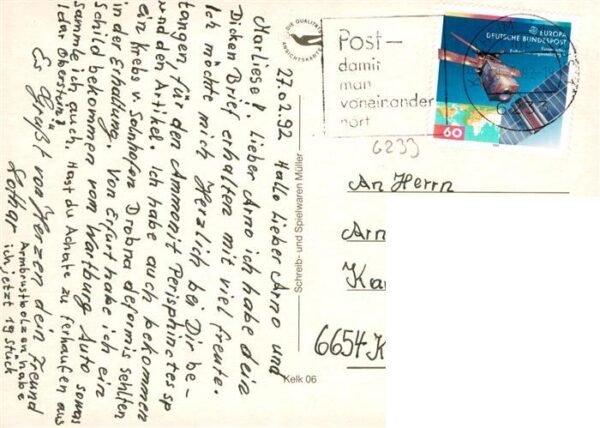 27.02.92 Hallo Lieber Arno und
Marliese!. Lieber Arno ich habe dein
Dicken Brief erhalten mit viel freute.
Ich möchte mich Herzlich bei Dir be-
tangen, für den Ammonit Perisphinctes sp
und den Artikel. Ich habe auch bekommen
ein Krebs v. Solnhofen Drobna deformis sehlten
in der Erhaltung. Von Erfurt habe ich ein
Schild bekommen vom Wartburg Auto sowas
sammle ich auch. Hast du Achate zu ferhaufen aus
Idar Oberstein?
Es Grüßt von Herzen dein Freund
Lothar
Armbrustbolzen habe
ich jetzt 19 Stück
DIE QUALITÄTS
ANSICHTSKARTE
Post-
damit
man
voneinander
hört
EUROPA
DEUTSCHE BUNDESPOST
60
6233
Schreib- und Spielwaren Müller
Kelk 06
An Herrn
Arn
Ka
6654-K